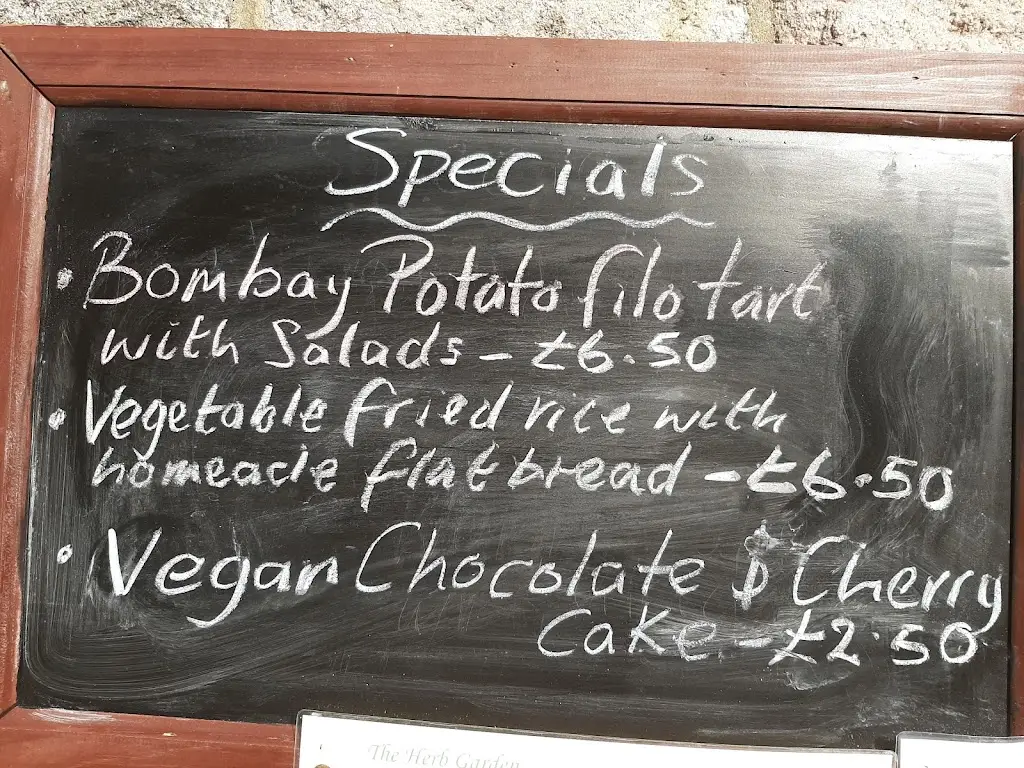 Specials
• Bombay Potato filo tart
with Salads - £6.50
• Vegetable fried rice with
homeacle flatbread - £6.50
• Vegan Chocolate $ Cherry
Cake - £2.50
The Herb Garden